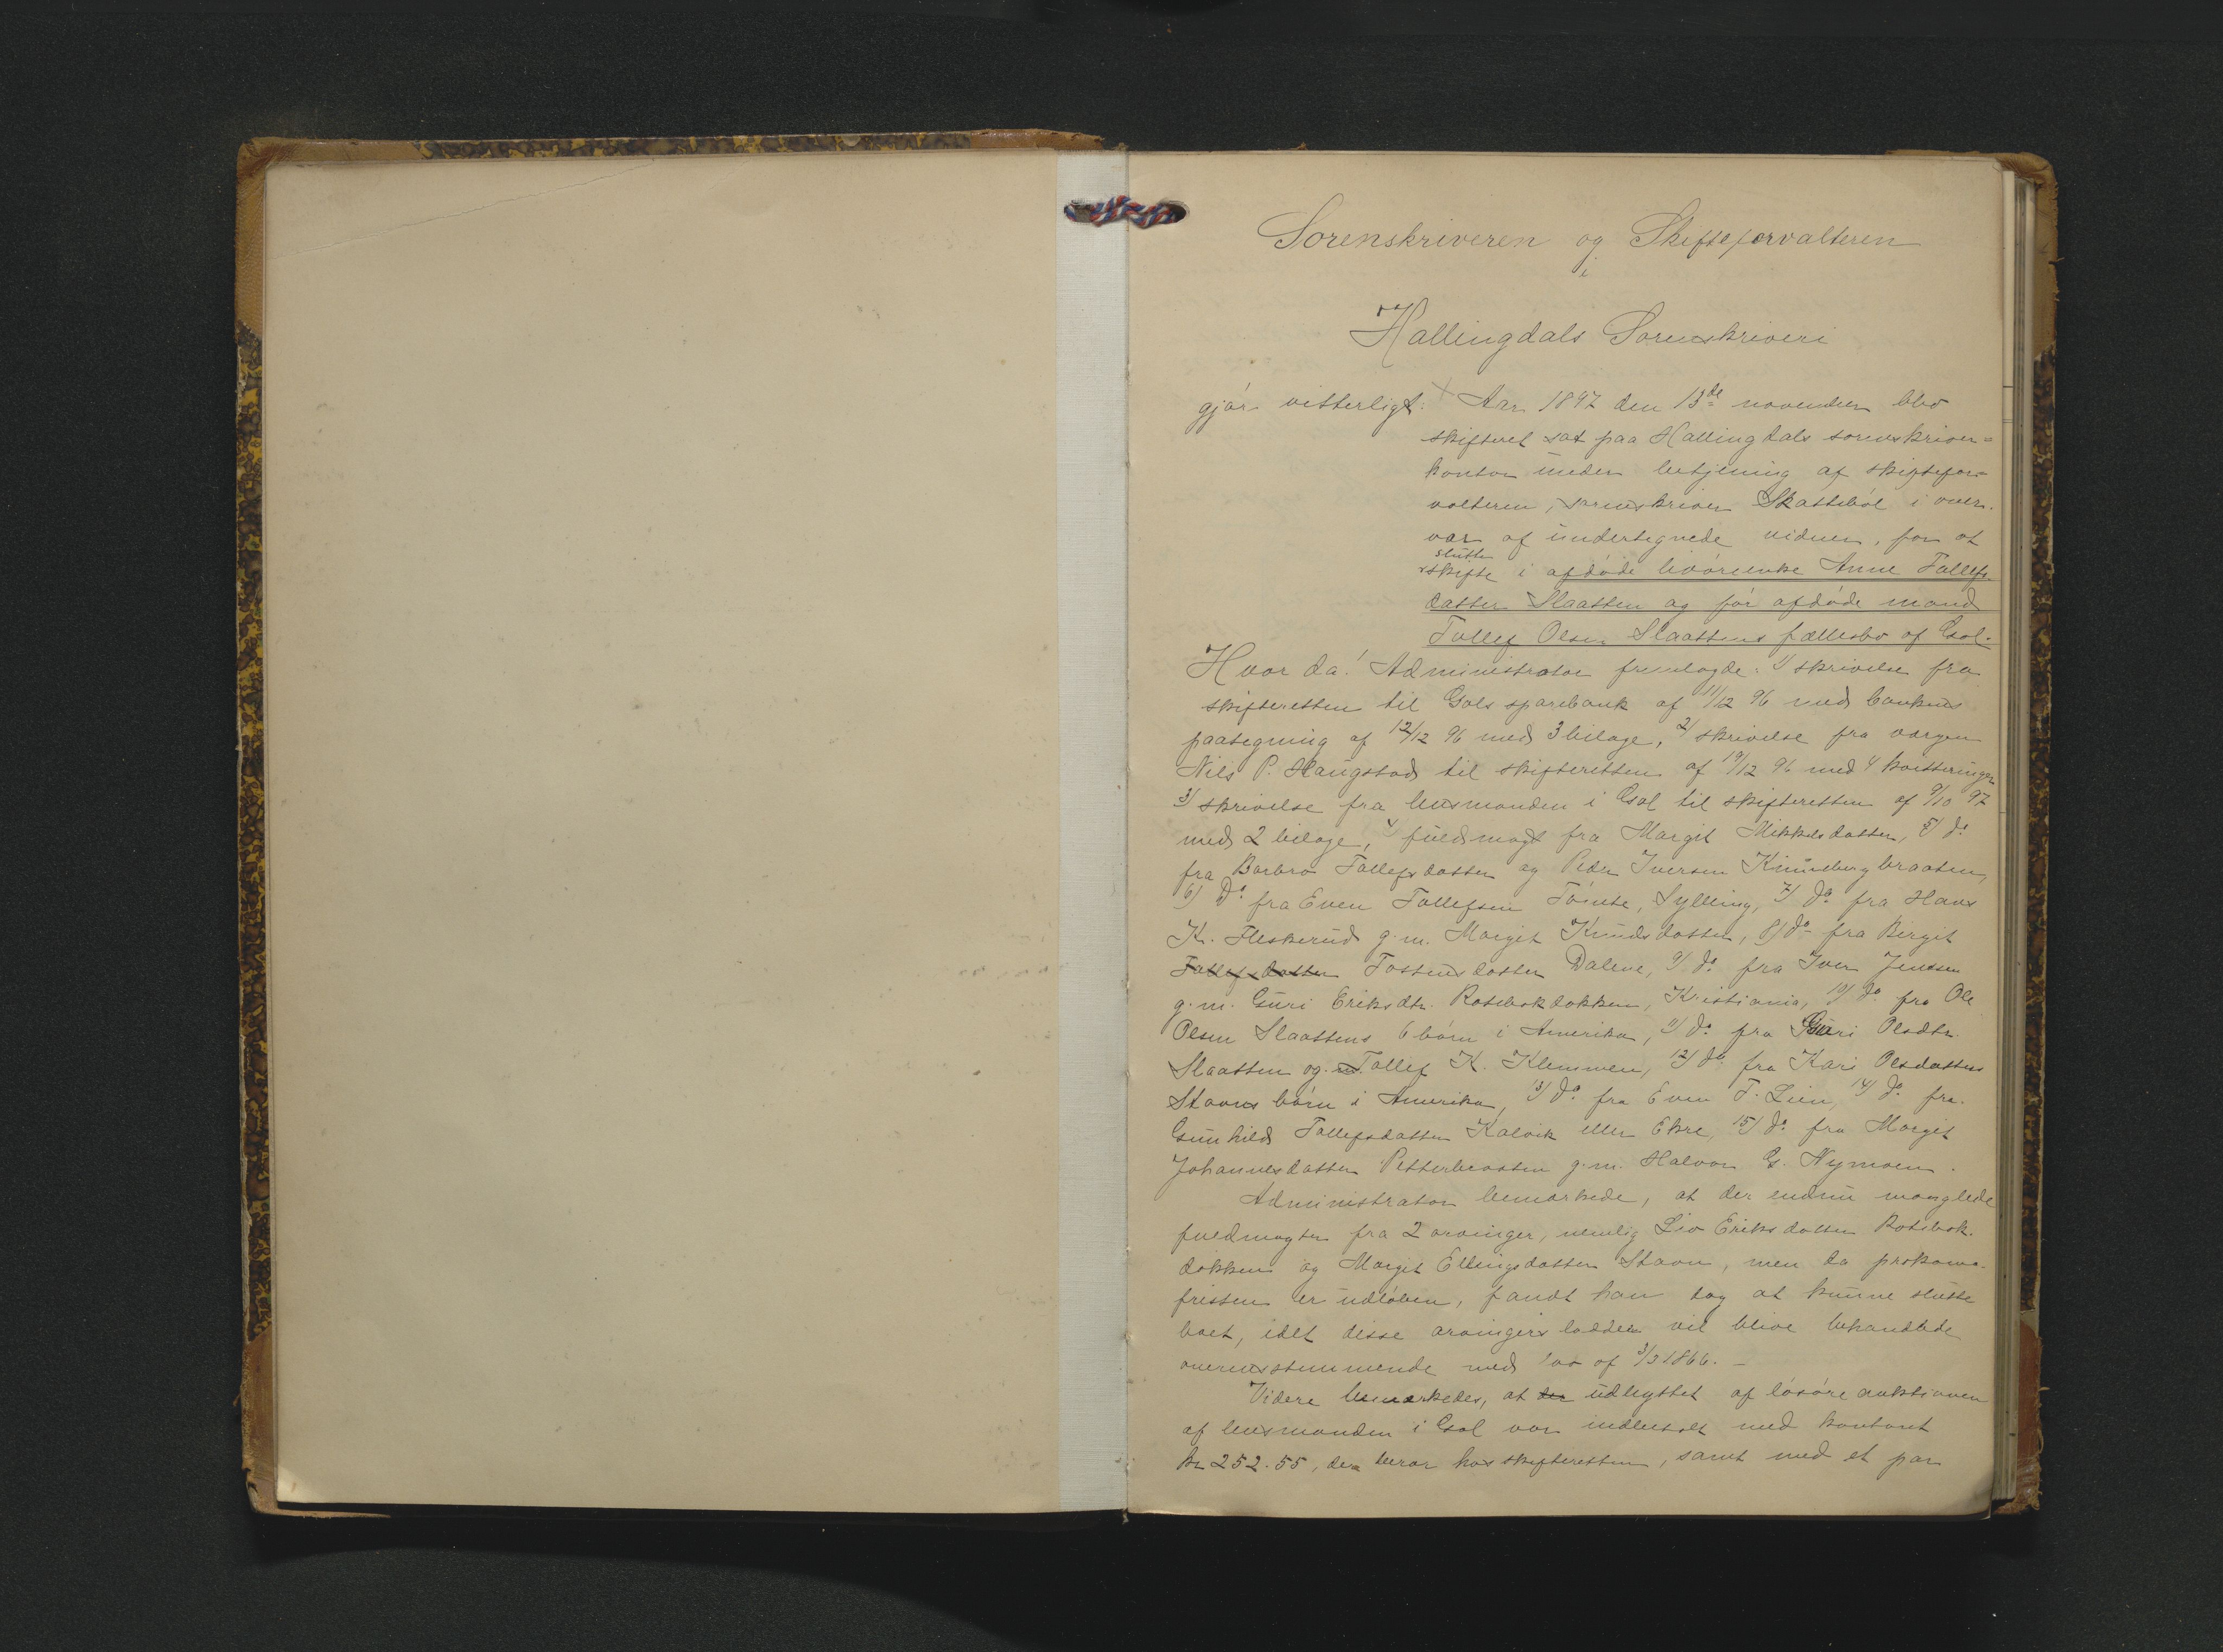 Sorenskriveren og Skifteforvalteren
i
Hallingdals Sorenskriveri
gjør vitterligt: Aar 1897 den 13de november blev
skifteret sat paa Hallingdals sorenskriver=
kontor under betjening af skiftefor=
valteren, sorenskriver Skattebøl i over-
vær af undertegnede vidner, for at
slutte
skifte i afdøde livørenke Anne Tollefs-
datter Slaatten og før afdøde mand
Tollef Olsen Slaattens fællesbo af Gol.
Hvor da! Administrator fremlagde: 1/ skrivelse fra
skifteretten til Gols sparebank af 11/12 96 med bankens
paategning af 12/12 96 med 3 bilage, 2/ skrivelse fra værgen
Nils P. Haugstad til skifteretten af 19/12 96 med 4 kvitteringer
3/ skrivelse fra lensmanden i Gol til skifteretten af 9/10 97
med 2 bilage, 4/ fuldmagt fra Margit Mikkelsdatter, 5/ do
fra Barbro Tollefsdatter og Peder Iversen Kinnebergbraaten,
6/ Do fra Even Tollefsen Tointe, Sylling, 7/ do fra Hans
K. Fleskerud g. m. Margit Knudsdatter, 8/ do fra Birgit
Tollefsdatter Tostensdatter Dalene, 9/ do fra Iver Jensen
g. m. Guri Eriksdtr. Rotebokdokken, Kristiania, 10/ do fra Ole
Olsen Slaattens 6 børn i Amerika, 11/ do fra Guri Olsdtr.
Slaatten og Tollef K. Klemmen, 12/ do fra Kari Olsdatter
Stavns børn i Amerika, 13/ do fra Even T. Lien, 14/ do fra
Gunhild Tollefsdatter Kalvik eller Ekre, 15/ do fra Margit
Johannesdatter Petterbraaten g. m. Halvor G. Nymoen.
Administrator bemærkede, at der endnu manglede
fuldmagter fra 2 arvinger, nemlig Liv Eriksdatter Rotebok-
dokken og Margit Ellingsdatter Stavn, men da proklama-
fristen er udløben, fandt han dog at kunne slutte
boet, idet disse arvingers lodder vil blive behandlede
overensstemmende med lov af 3/3 1866. -
Videre bemærkedes, at der udbyttet af løsøreauktionen
af lensmanden i Gol var indbetalt med kontant
kr 252.55, der beror hos skifteretten, samt med et par